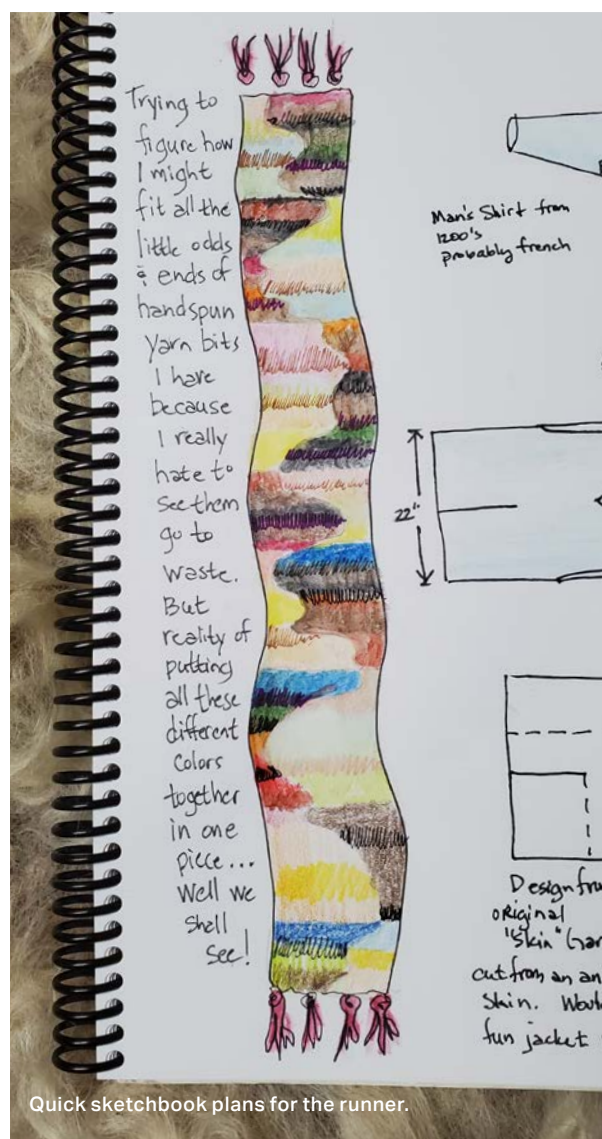 Trying to
figure how
I might
fit all the
little odds
& ends of
handspun
yarn bits
I have
because
I really
hate to
see them
go to
waste.
But
reality of
putting
all these
different
colors
together
in one
piece...
Well we
shall
see!
Man's Shirt from
1200's
probably french
22"
Design fr
original
"Skin" Gar
cut from an an
Skin. Woul
fun jacket
Quick sketchbook plans for the runner.